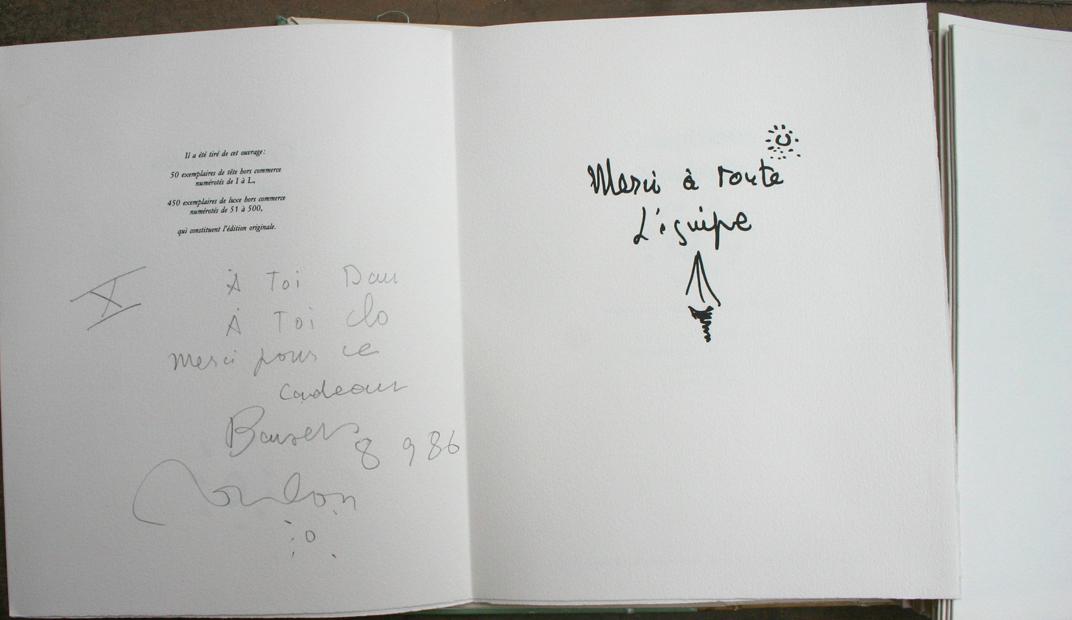 Il a été tiré de cet ouvrage :
50 exemplaires de tête hors commerce
numérotés de I à L,
450 exemplaires de luxe hors commerce
numérotés de 51 à 500,
qui constituent l'édition originale.
X
À Toi Dan
À Toi Clo
Merci pour ce
cadeau
Baisers
8 9 86
Merci à toute
L'équipe